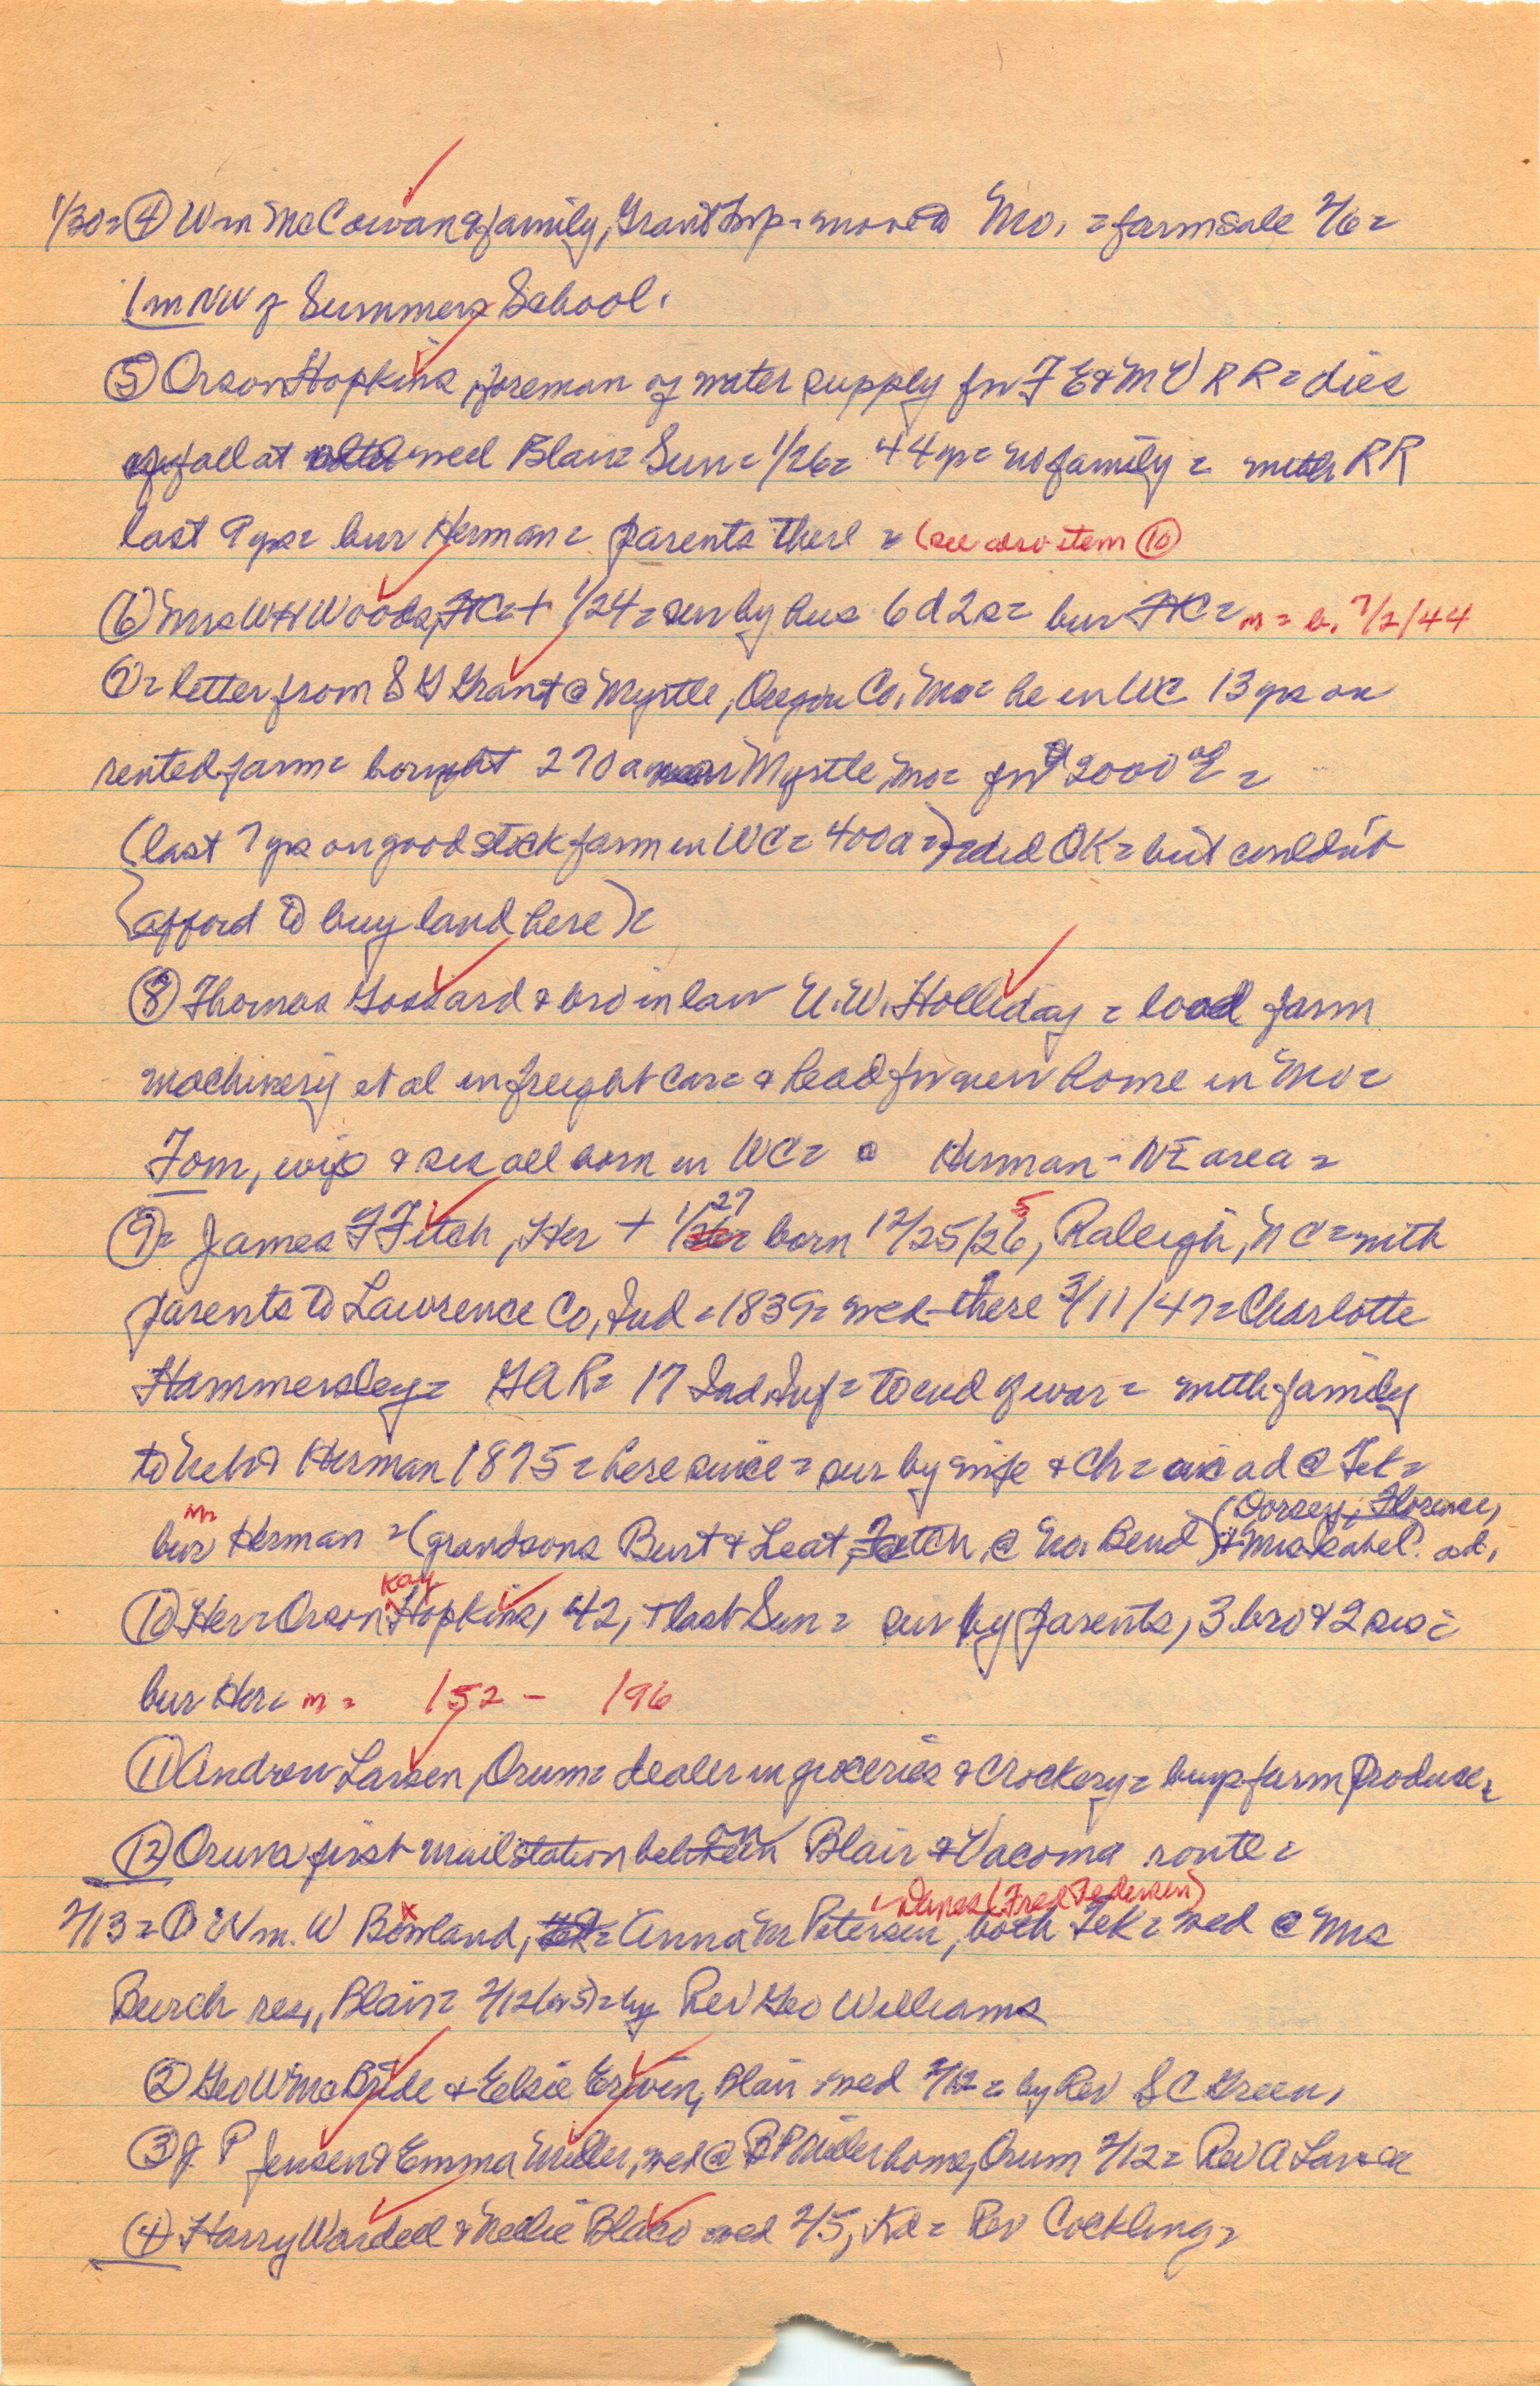 1/30= ④ Wm McCowan & family, Grant Twp - move to Mo. = farm sale 2/6=
1 m NW of Summers School.
⑤ Orson Hopkins, foreman of water supply for F E & M V R R = dies
of fall at well Blair= Sun= 1/26= 44 yrs= no family = with RR
last 9 yrs= bur Herman= parents there = (see also item ⑩
⑥ Mrs W H Woods, FC= + 1/24= sur by hus 6 d 2 s= bur FC= m= b. 7/2/44
⑦= letter from S G Grant @ Myrtle, Oregon Co. Mo= he in WC 13 yrs on
rented farm= bought 270 a near Myrtle, Mo= for $2000 =
(last 7 yrs on good stock farm in WC= 400 a=) = did OK= but couldn't
(afford to buy land here)=
⑧ Thomas Gossard & bro in law U. W. Holliday = load farm
machinery et al in freight car= & head for new home in Mo=
Tom, wife & sis all born in WC= Herman - NE area =
⑨= James F Fitch, Her + 1/27 born 12/25/25, Raleigh, N C= with
parents to Lawrence Co, Ind = 1839= wed there 3/11/47= Charlotte
Hammersley= GAR= 17 Ind. Inf= to end of war = with family
to Neb & Herman 1875 = here since = sur by wife & ch= ad @ Tek=
m=
bur Herman =(grandsons Burt & Leat Fitch, @ No. Bend) & Mrs ad.
(Dorsey, Florence,
⑩ Her= Orson Kay Hopkins, 42, + last Sun= sur by parents, 3 bro & 2 sis=
bur Her= m= 152 - 196
⑪ Andrew Larsen, Orum= dealer in groceries & crockery= buys farm produce=
⑫ Orum first mail station on Blair & Vacoma route=
Danes (Fred Pedersen)
2/13= ① Wm. W Bowland, Anna M Petersen, both Tek= wed @ Mrs
Burch res., Blair= 2/12 by Rev Geo Williams
② Geo W McBride & Elsie Erwin, Blair wed 2/12 = by Rev S C Green.
③ J P Jensen & Emma Miller, wed @ P Miller home, Orum 2/12= Rev A Larsen
④ Harry Wardell & Nellie Blaco wed 2/5, Kd= Rev Cockling=